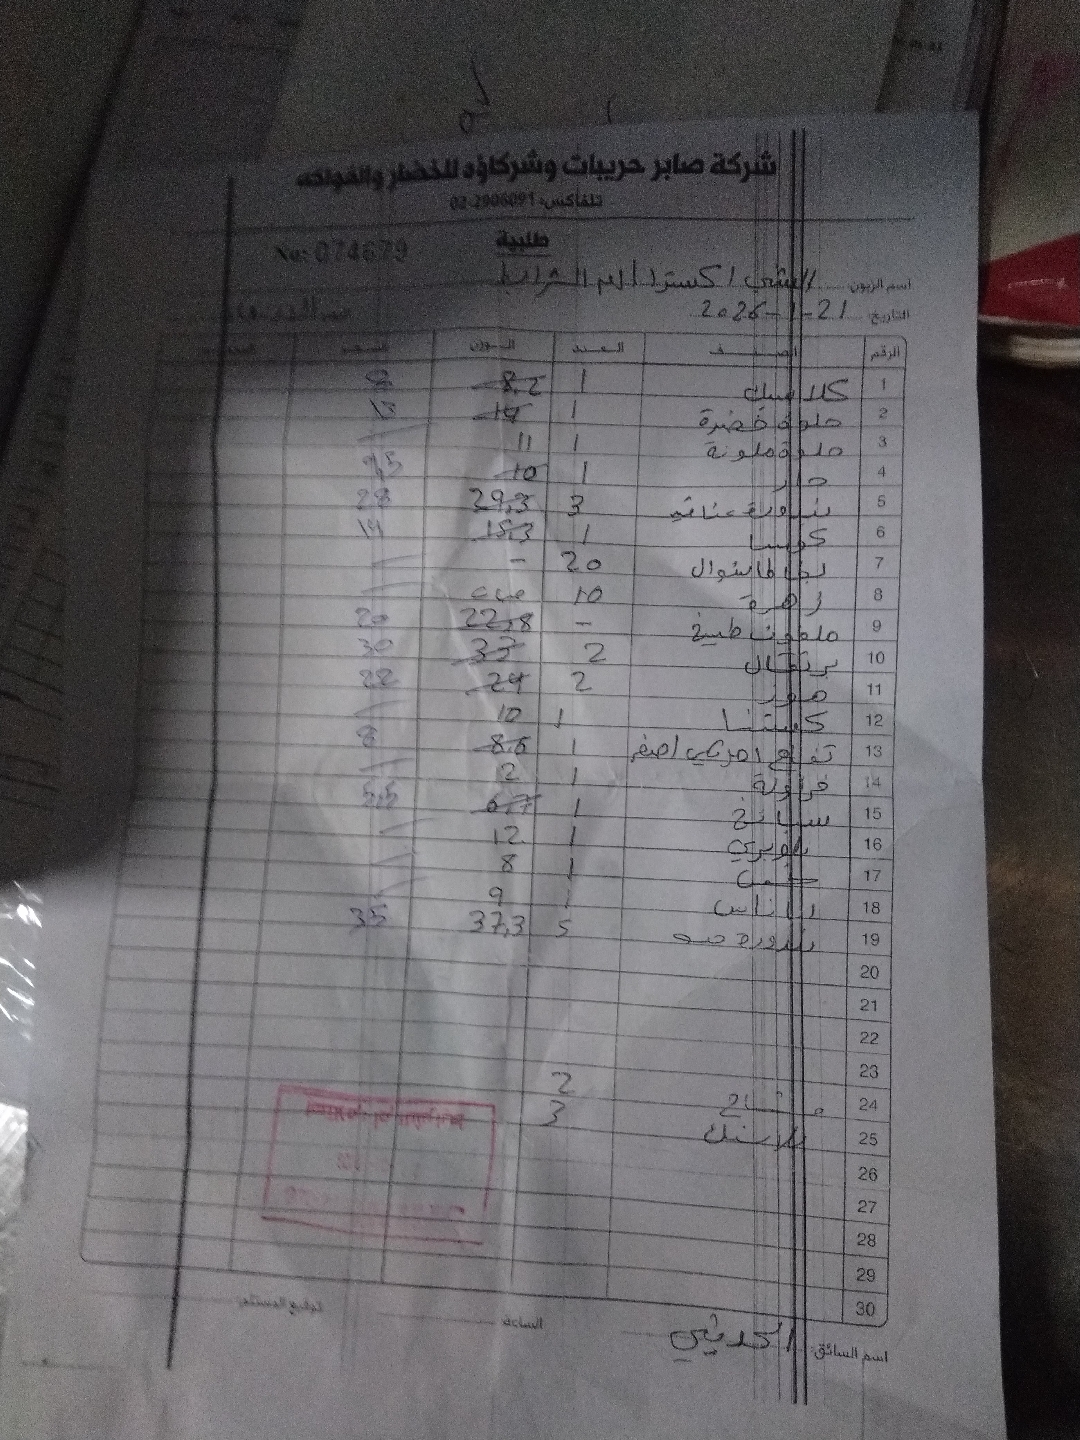 شركة صابر حريبات وشركاؤه للخضار والفواكه
تلفاكس: 02-2906091
طلبية
No: 074679
اسم الزبون الشني اكسترا أم الشرايط
التاريخ: 21-1-2026
الرقم الصنف العدد الوزن السعر
1 كلاسيك 1 8,2
2 حلوة خضرة 1 14 13
3 حلوة ملونة 1 11
4 حار 1 10 9,5
5 بندورة عناقيد 3 29,3 28
6 كوسا 1 15,3 14
7 بطاطا شوال 20 -
8 زهرة 10 حبة
9 ملفوف طبيخ - 22,8 20
10 برتقال 2 33 30
11 موز 2 24 22
12 كستنا 1 10
13 تفاح امريكي اصفر 1 8.6 8
14 فراولة 1 12
15 سبانخ 1 6,7 5,5
16 بلوبيري 1 12
17 خس 1 8
18 اناناس 1 9
19 بندورة حبه 5 37,3 35
20
21
22
23
24 مشتاح 2
25 بلاستك 3
26
27
28
29
30
اسم السائق: الحديثي الساعة: